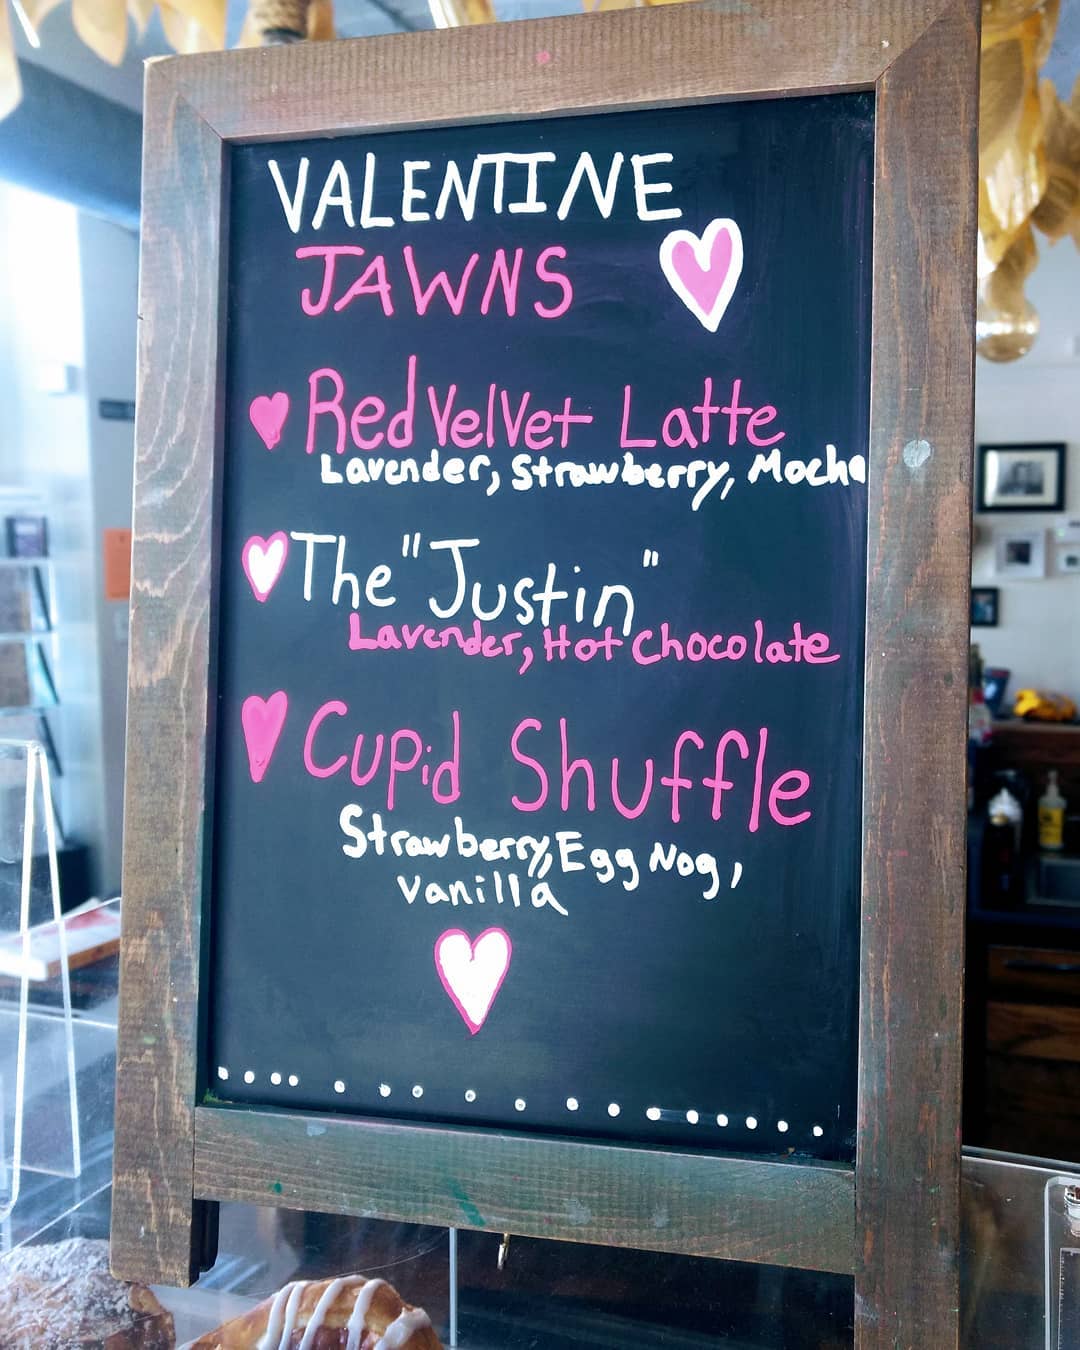 VALENTINE
JAWNS
Red Velvet Latte
Lavender, Strawberry, Mocha
The "Justin"
Lavender, Hot Chocolate
Cupid Shuffle
Strawberry, Egg Nog,
vanilla